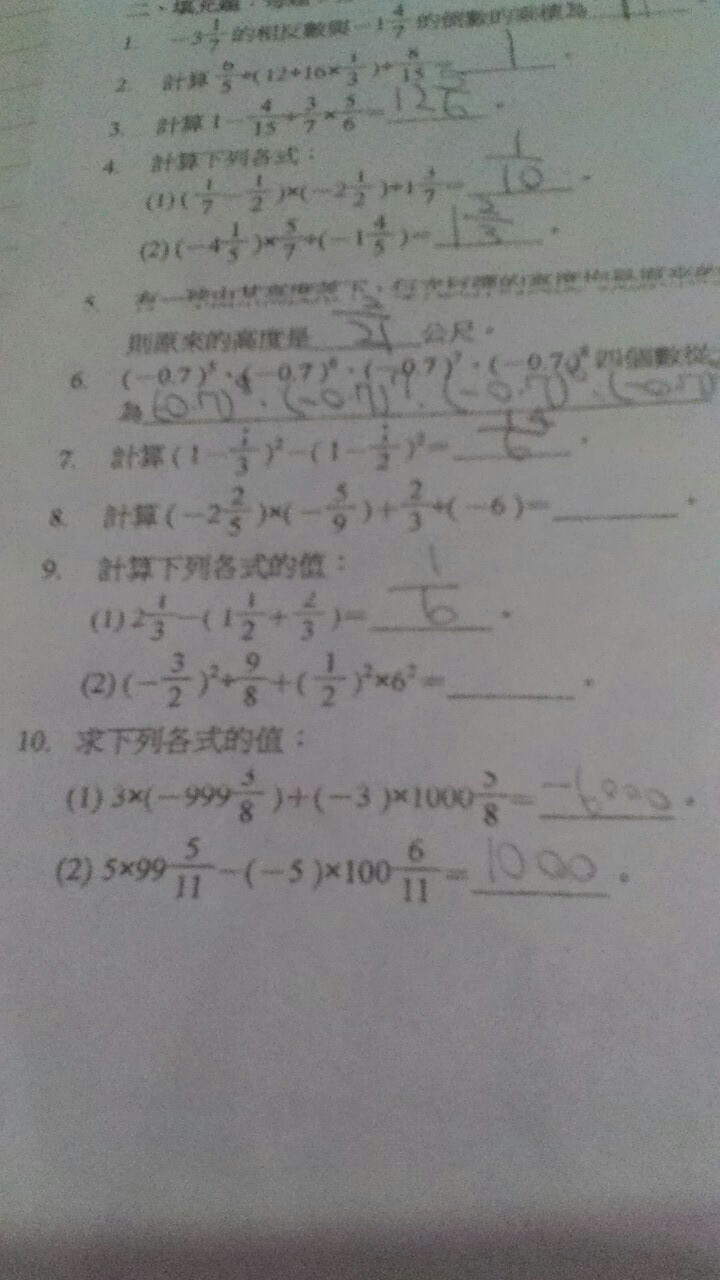 1. −3 1/7 的相反數與 −1 4/7 的倒數的乘積為
2. 計算 6/5÷(12+16×1/3)÷8/15= 1 。
3. 計算 1−4/15÷3/7×5/6=
4. 計算下列各式：
(1) (1/7−1/2)×(−2 1/2)÷1 3/7= 1/10 。
(2) (−4 1/5)×5/7÷(−1 4/5)= 1 2/3 。
5. 有一球由某高度落下，每次反彈的高度均是原來的
則原來的高度是 2/21 公尺。
6. 四個數從
為
7. 計算 (1−1/3)²−(1−1/2)²= 。
8. 計算 (−2 2/5)×(−5/9)+2/3÷(−6)= 。
9. 計算下列各式的值：
(1) 2 1/3−(1 1/2+2/3)= 1/6 。
(2) (−3/2)²÷9/8+(1/2)²×6²= 。
10. 求下列各式的值：
(1) 3×(−999 5/8)+(−3)×1000 3/8= −6000 。
(2) 5×99 5/11−(−5)×100 6/11= 1000 。